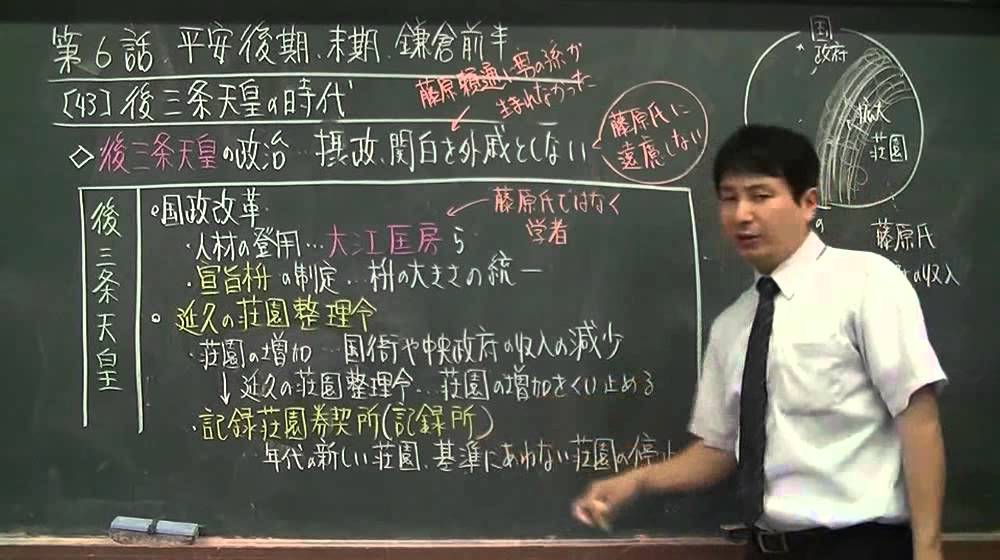 第6話 平安後期、末期、鎌倉前半
[43] 後三条天皇の時代
藤原頼通に男の孫が
生まれなかった
◇後三条天皇の政治…摂政、関白を外戚としない
藤原氏に
遠慮しない
後三条天皇
○国政改革
藤原氏ではなく
学者
・人材の登用…大江匡房ら
・宣旨枡の制定…枡の大きさの統一
○延久の荘園整理令
・荘園の増加…国衙や中央政府の収入の減少
↓延久の荘園整理令…荘園の増加をくい止める
・記録荘園券契所(記録所)
年代の新しい荘園、基準にあわない荘園の停止
国
政府
拡大
荘園
の
藤原氏
の収入